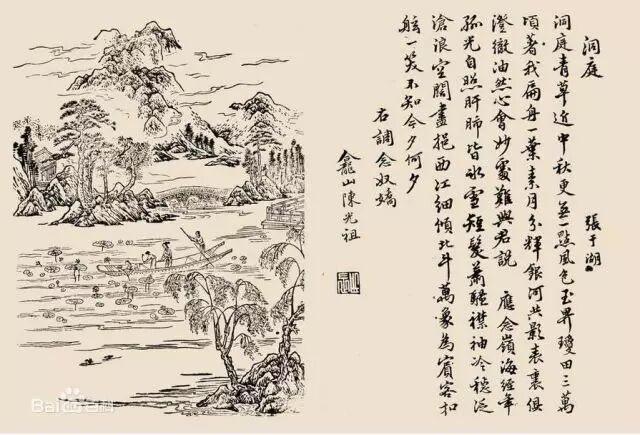 洞庭 張于湖
洞庭青草近中秋更無一點風色玉界瓊田三萬
頃著我扁舟一葉素月分輝銀河共影表裏俱
澄澈油然心會妙處難與君說 應念嶺海經年
孤光自照肝肺皆冰雪短髮蕭騷襟袖冷穩泛
滄浪空闊盡挹西江細傾北斗萬象為賓客扣
舷一笑不知今夕何夕
右調念奴嬌
龕山陳光祖
Bai百科